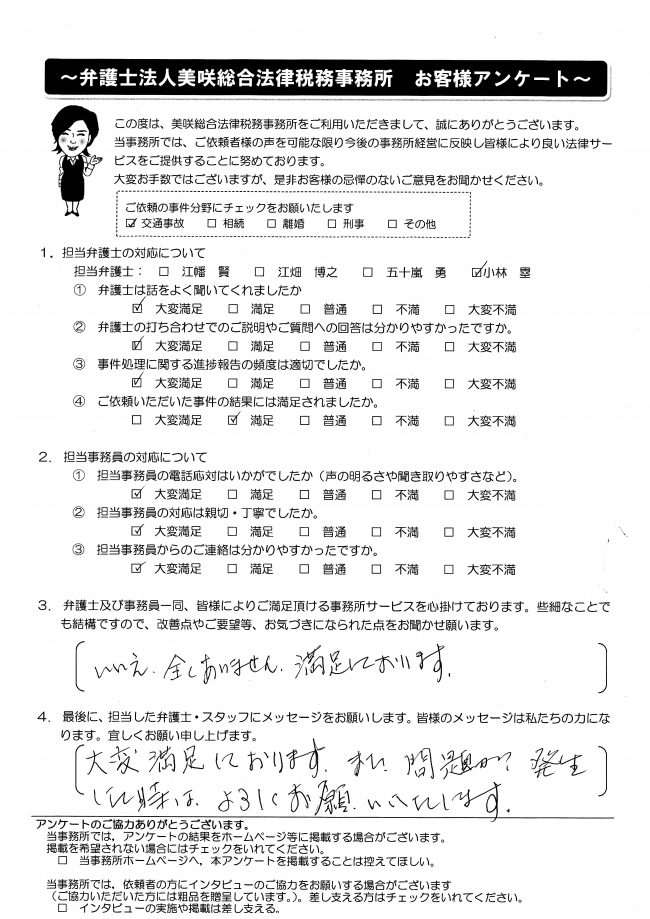 ～弁護士法人美咲総合法律税務事務所　お客様アンケート～
この度は、美咲総合法律税務事務所をご利用いただきまして、誠にありがとうございます。
当事務所では、ご依頼者様の声を可能な限り今後の事務所経営に反映し皆様により良い法律サー
ビスをご提供することに努めております。
大変お手数ではございますが、是非お客様の忌憚のないご意見をお聞かせください。
ご依頼の事件分野にチェックをお願いたします
☑ 交通事故　□ 相続　□ 離婚　□ 刑事　□ その他
１．担当弁護士の対応について
担当弁護士：　□ 江幡 賢　□ 江畑 博之　□ 五十嵐 勇　☑ 小林 塁
① 弁護士は話をよく聞いてくれましたか
☑ 大変満足　□ 満足　□ 普通　□ 不満　□ 大変不満
② 弁護士の打ち合わせでのご説明やご質問への回答は分かりやすかったですか。
☑ 大変満足　□ 満足　□ 普通　□ 不満　□ 大変不満
③ 事件処理に関する進捗報告の頻度は適切でしたか。
☑ 大変満足　□ 満足　□ 普通　□ 不満　□ 大変不満
④ ご依頼いただいた事件の結果には満足されましたか。
□ 大変満足　☑ 満足　□ 普通　□ 不満　□ 大変不満
２．担当事務員の対応について
① 担当事務員の電話応対はいかがでしたか（声の明るさや聞き取りやすさなど）。
☑ 大変満足　□ 満足　□ 普通　□ 不満　□ 大変不満
② 担当事務員の対応は親切・丁寧でしたか。
☑ 大変満足　□ 満足　□ 普通　□ 不満　□ 大変不満
③ 担当事務員からのご連絡は分かりやすかったですか。
☑ 大変満足　□ 満足　□ 普通　□ 不満　□ 大変不満
３．弁護士及び事務員一同、皆様によりご満足頂ける事務所サービスを心掛けております。些細なことで
も結構ですので、改善点やご要望等、お気づきになられた点をお聞かせ願います。
いいえ、全くありません、満足しております。
４．最後に、担当した弁護士・スタッフにメッセージをお願いします。皆様のメッセージは私たちの力にな
ります。宜しくお願い申し上げます。
大変満足しております、また、問題が発生
した時は、よろしくお願いいたします。
アンケートのご協力ありがとうございます。
当事務所では，アンケートの結果をホームページ等に掲載する場合がございます。
掲載を希望されない場合にはチェックをいれてください。
□ 当事務所ホームページへ，本アンケートを掲載することは控えてほしい。
当事務所では，依頼者の方にインタビューのご協力をお願いする場合がございます
（ご協力いただいた方には粗品を贈呈しています。）。差し支える方はチェックをいれてください。
□ インタビューの実施や掲載は差し支える。